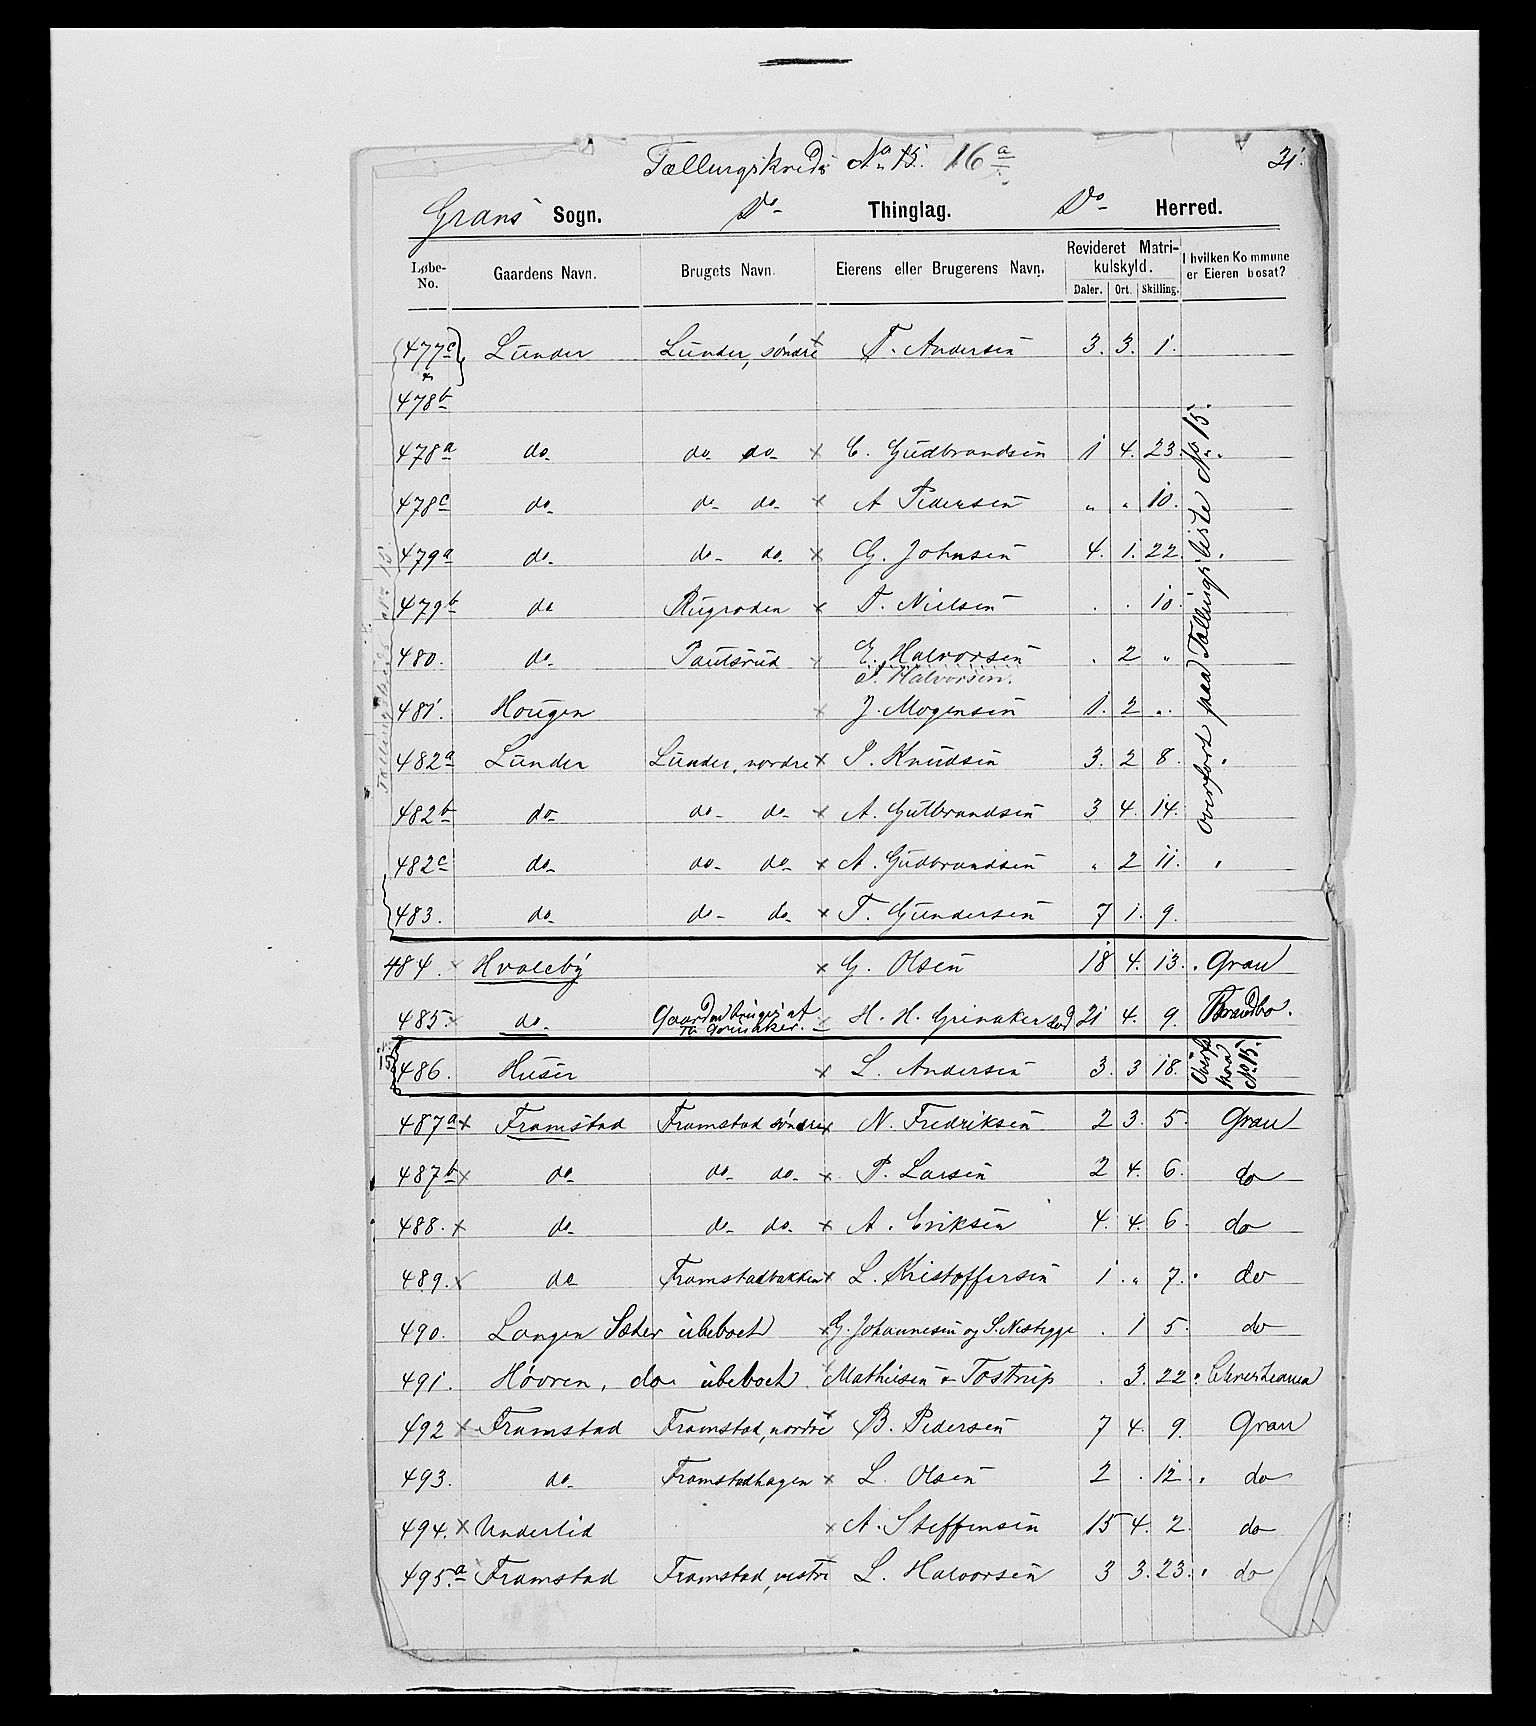 Tællingskreds No 15. 16a 31.
Grans Sogn. Do Thinglag. Do Herred.
Løbe-No. Gaardens Navn. Brugets Navn. Eierens eller Brugerens Navn. Revideret Matrikulskyld. Daler. Ort. Skilling. I hvilken Kommune er Eieren bosat?
477c Lunder Lunder, søndre × T. Andersen 3. 3. 1.
&
478b
478a do do do × C. Gudbrandsen 1 4. 23.
478c do do do × A Pedersen " " 10.
479a do do do × G. Johnsen 4. 1. 22.
479b do Rugroden × T. Nielsen . . 10.
480. do Pautsrud × E. Halvorsen . 2 "
P. Halvorsen.
481. Hougen × J. Mogensen 1. 2 ".
482a Lunder Lunder, nordre × P. Knudsen 3. 2 8.
482b do do do × A. Gulbrandsen 3 4. 14.
482c do do do × A. Gudbrandsen " 2 11.
483. do do do × T. Gundersen 7 1. 9.
overført paa Tællingsliste No 15.
Tællingskreds No 15.
484. × Hvaleby × G. Olsen 18 4. 13. Gran
485. × do Gaarden bruges af
Th. Grinaker. × H. H. Grinaker 21 4. 9. Brandbo.
No 15 486. Huser × L. Andersen 3. 3 18. Overf. paa No 15.
487a × Framstad Framstad søndre × N. Fredriksen 2 3. 5. Gran
487b × do do do × P. Larsen 2 4. 6. do
488. × do do do × A. Eriksen 4. 4. 6. do
489. × do Framstadbakken × L. Kristoffersen 1. " 7. do
490. Langen Sæter ubeboet × G. Johannesen og S. Nesteggе . 1 5. do
491. Høvren, do ubeboet. × Mathiesen & Tostrup . 3. 22 Christiania
492 × Framstad Framstad, nordre × B. Pedersen 7 4. 9. Gran
493. do Framstadhagen × L. Olsen 2 . 12 do
494. × Underlid × A. Steffensen 15 4. 2. do
495.a × Framstad Framstad, vestre L. Halvorsen 3 3. 23. do